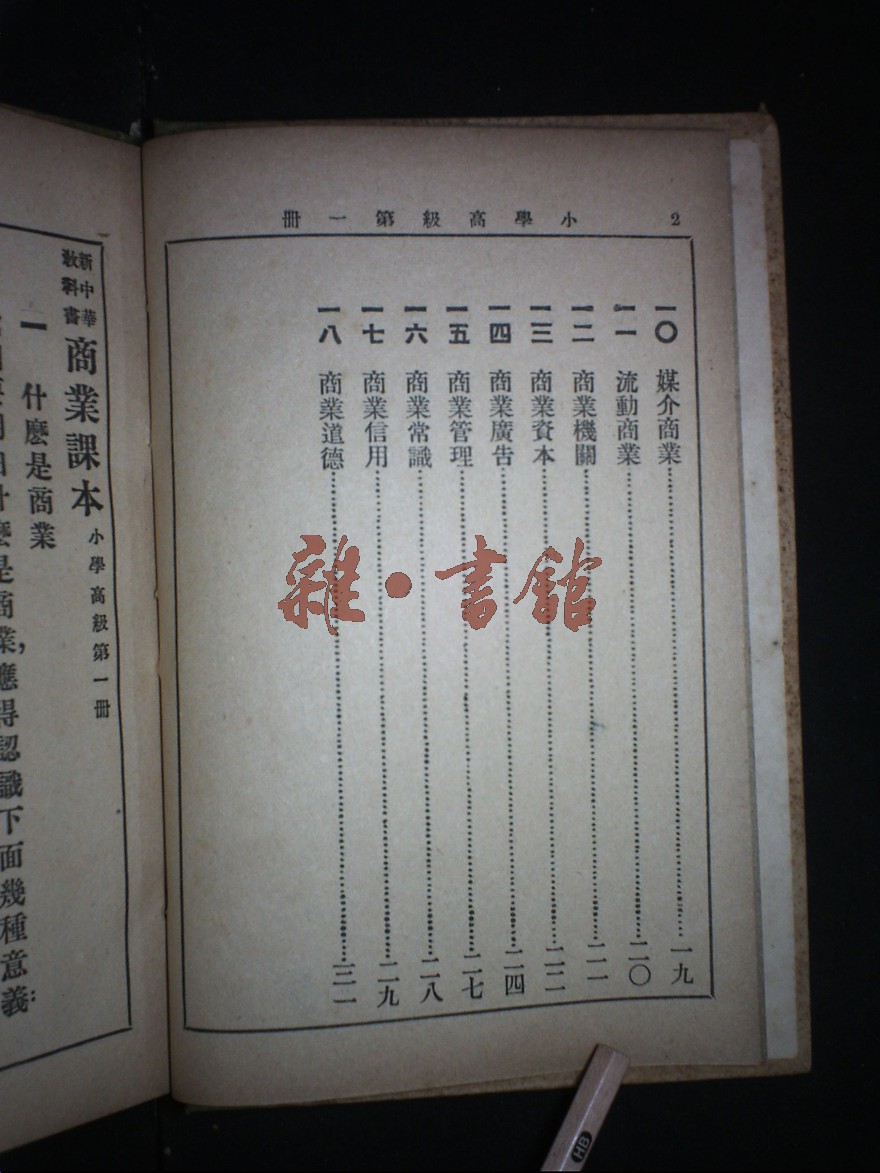 2 小學高級第一冊
一〇 媒介商業 一九
一一 流動商業 二〇
一二 商業機關 二一
一三 商業資本 二二
一四 商業廣告 二四
一五 商業管理 二七
一六 商業常識 二八
一七 商業信用 二九
一八 商業道德 三一
雜·書館
新中華
教科書
商業課本 小學高級第一冊
一 什麼是商業
什麼是商業,應得認識下面幾種意義:
HB